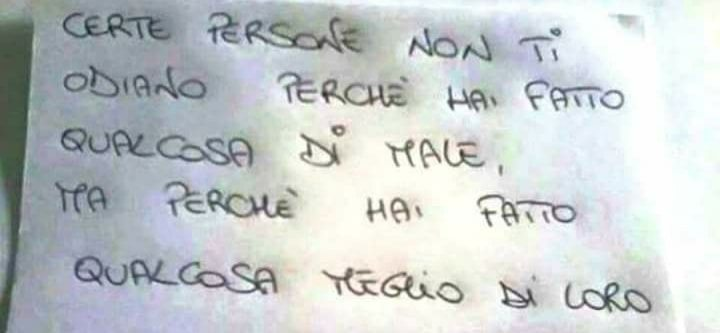 CERTE PERSONE NON Ti
ODIANO PERCHÈ HAi FATTO
QUALCOSA Di MALE,
MA PERCHÈ HAi FATTO
QUALCOSA MEGLiO Di LORO